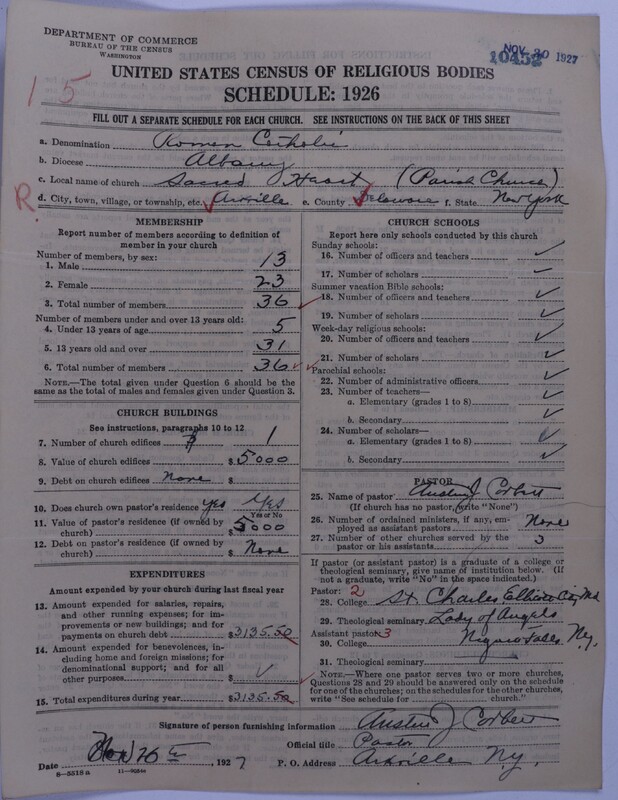 DEPARTMENT OF COMMERCE
BUREAU OF THE CENSUS
WASHINGTON
NOV 30 1927
10452
15
UNITED STATES CENSUS OF RELIGIOUS BODIES
SCHEDULE: 1926
FILL OUT A SEPARATE SCHEDULE FOR EACH CHURCH. SEE INSTRUCTIONS ON THE BACK OF THIS SHEET
a. Denomination Roman Catholic
b. Diocese Albany
c. Local name of church Sacred Heart (Parish Church)
R d. City, town, village, or township, etc. Arkville e. County Delaware f. State New York
MEMBERSHIP
Report number of members according to definition of
member in your church
Number of members, by sex:
1. Male 13
2. Female 23
3. Total number of members 36
Number of members under and over 13 years old:
4. Under 13 years of age 5
5. 13 years old and over 31
6. Total number of members 36
NOTE.—The total given under Question 6 should be
same as the total of males and females given under Question 3.
CHURCH BUILDINGS
See instructions, paragraphs 10 to 12
7. Number of church edifices 1
8. Value of church edifices $ 5000
9. Debt on church edifices None $
10. Does church own pastor's residence yes Yes
Yes or No
11. Value of pastor's residence (if owned by
church) $ 5000
12. Debt on pastor's residence (if owned by
church) $ None
EXPENDITURES
Amount expended by your church during last fiscal year
13. Amount expended for salaries, repairs,
and other running expenses; for im-
provements or new buildings; and for
payments on church debt $3135.50
14. Amount expended for benevolences, in-
cluding home and foreign missions; for
denominational support; and for all
other purposes $
15. Total expenditures during year $3135.50
CHURCH SCHOOLS
Report here only schools conducted by this church
Sunday schools:
16. Number of officers and teachers
17. Number of scholars
Summer vacation Bible schools:
18. Number of officers and teachers
19. Number of scholars
Week-day religious schools:
20. Number of officers and teachers
21. Number of scholars
Parochial schools:
22. Number of administrative officers
23. Number of teachers—
a. Elementary (grades 1 to 8)
b. Secondary
24. Number of scholars—
a. Elementary (grades 1 to 8)
b. Secondary
PASTOR
25. Name of pastor Austin J Corbett
(If church has no pastor, write "None")
26. Number of ordained ministers, if any, em-
ployed as assistant pastors None
27. Number of other churches served by the
pastor or his assistants 3
If pastor (or assistant pastor) is a graduate of a college or
theological seminary, give name of institution below. (If
not a graduate, write "No" in the space indicated.)
Pastor: 2
28. College St Charles Ellicott City Md
29. Theological seminary Lady of Angels
Assistant pastor: 3
30. College Niagara Falls Ny.
31. Theological seminary
NOTE.—Where one pastor serves two or more churches,
Questions 28 and 29 should be answered only on the schedule
for one of the churches; on the schedules for the other churches,
write "See schedule for church."
Signature of person furnishing information Austin J Corbett
Official title Pastor
Date Nov 26 th, 1927 P. O. Address Arkville Ny.
8—5518 a